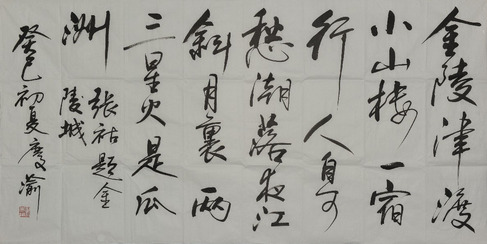 金陵津渡
小山楼一宿
行人自可
愁潮落夜江
斜月裏两
三星火是瓜
洲
张祜题金
陵城
癸巳初夏